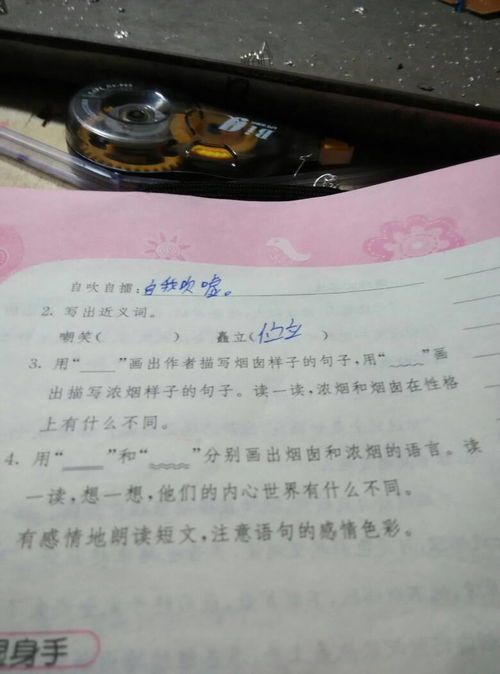 自吹自擂：自我吹嘘。
2. 写出近义词。
嘲笑（ ） 矗立（伫立）
3. 用“____”画出作者描写烟囱样子的句子，用“﹏﹏”画
出描写浓烟样子的句子。读一读，浓烟和烟囱在性格
上有什么不同。
4. 用“____”和“﹏﹏”分别画出烟囱和浓烟的语言。读
一读，想一想，他们的内心世界有什么不同。
有感情地朗读短文，注意语句的感情色彩。
身手